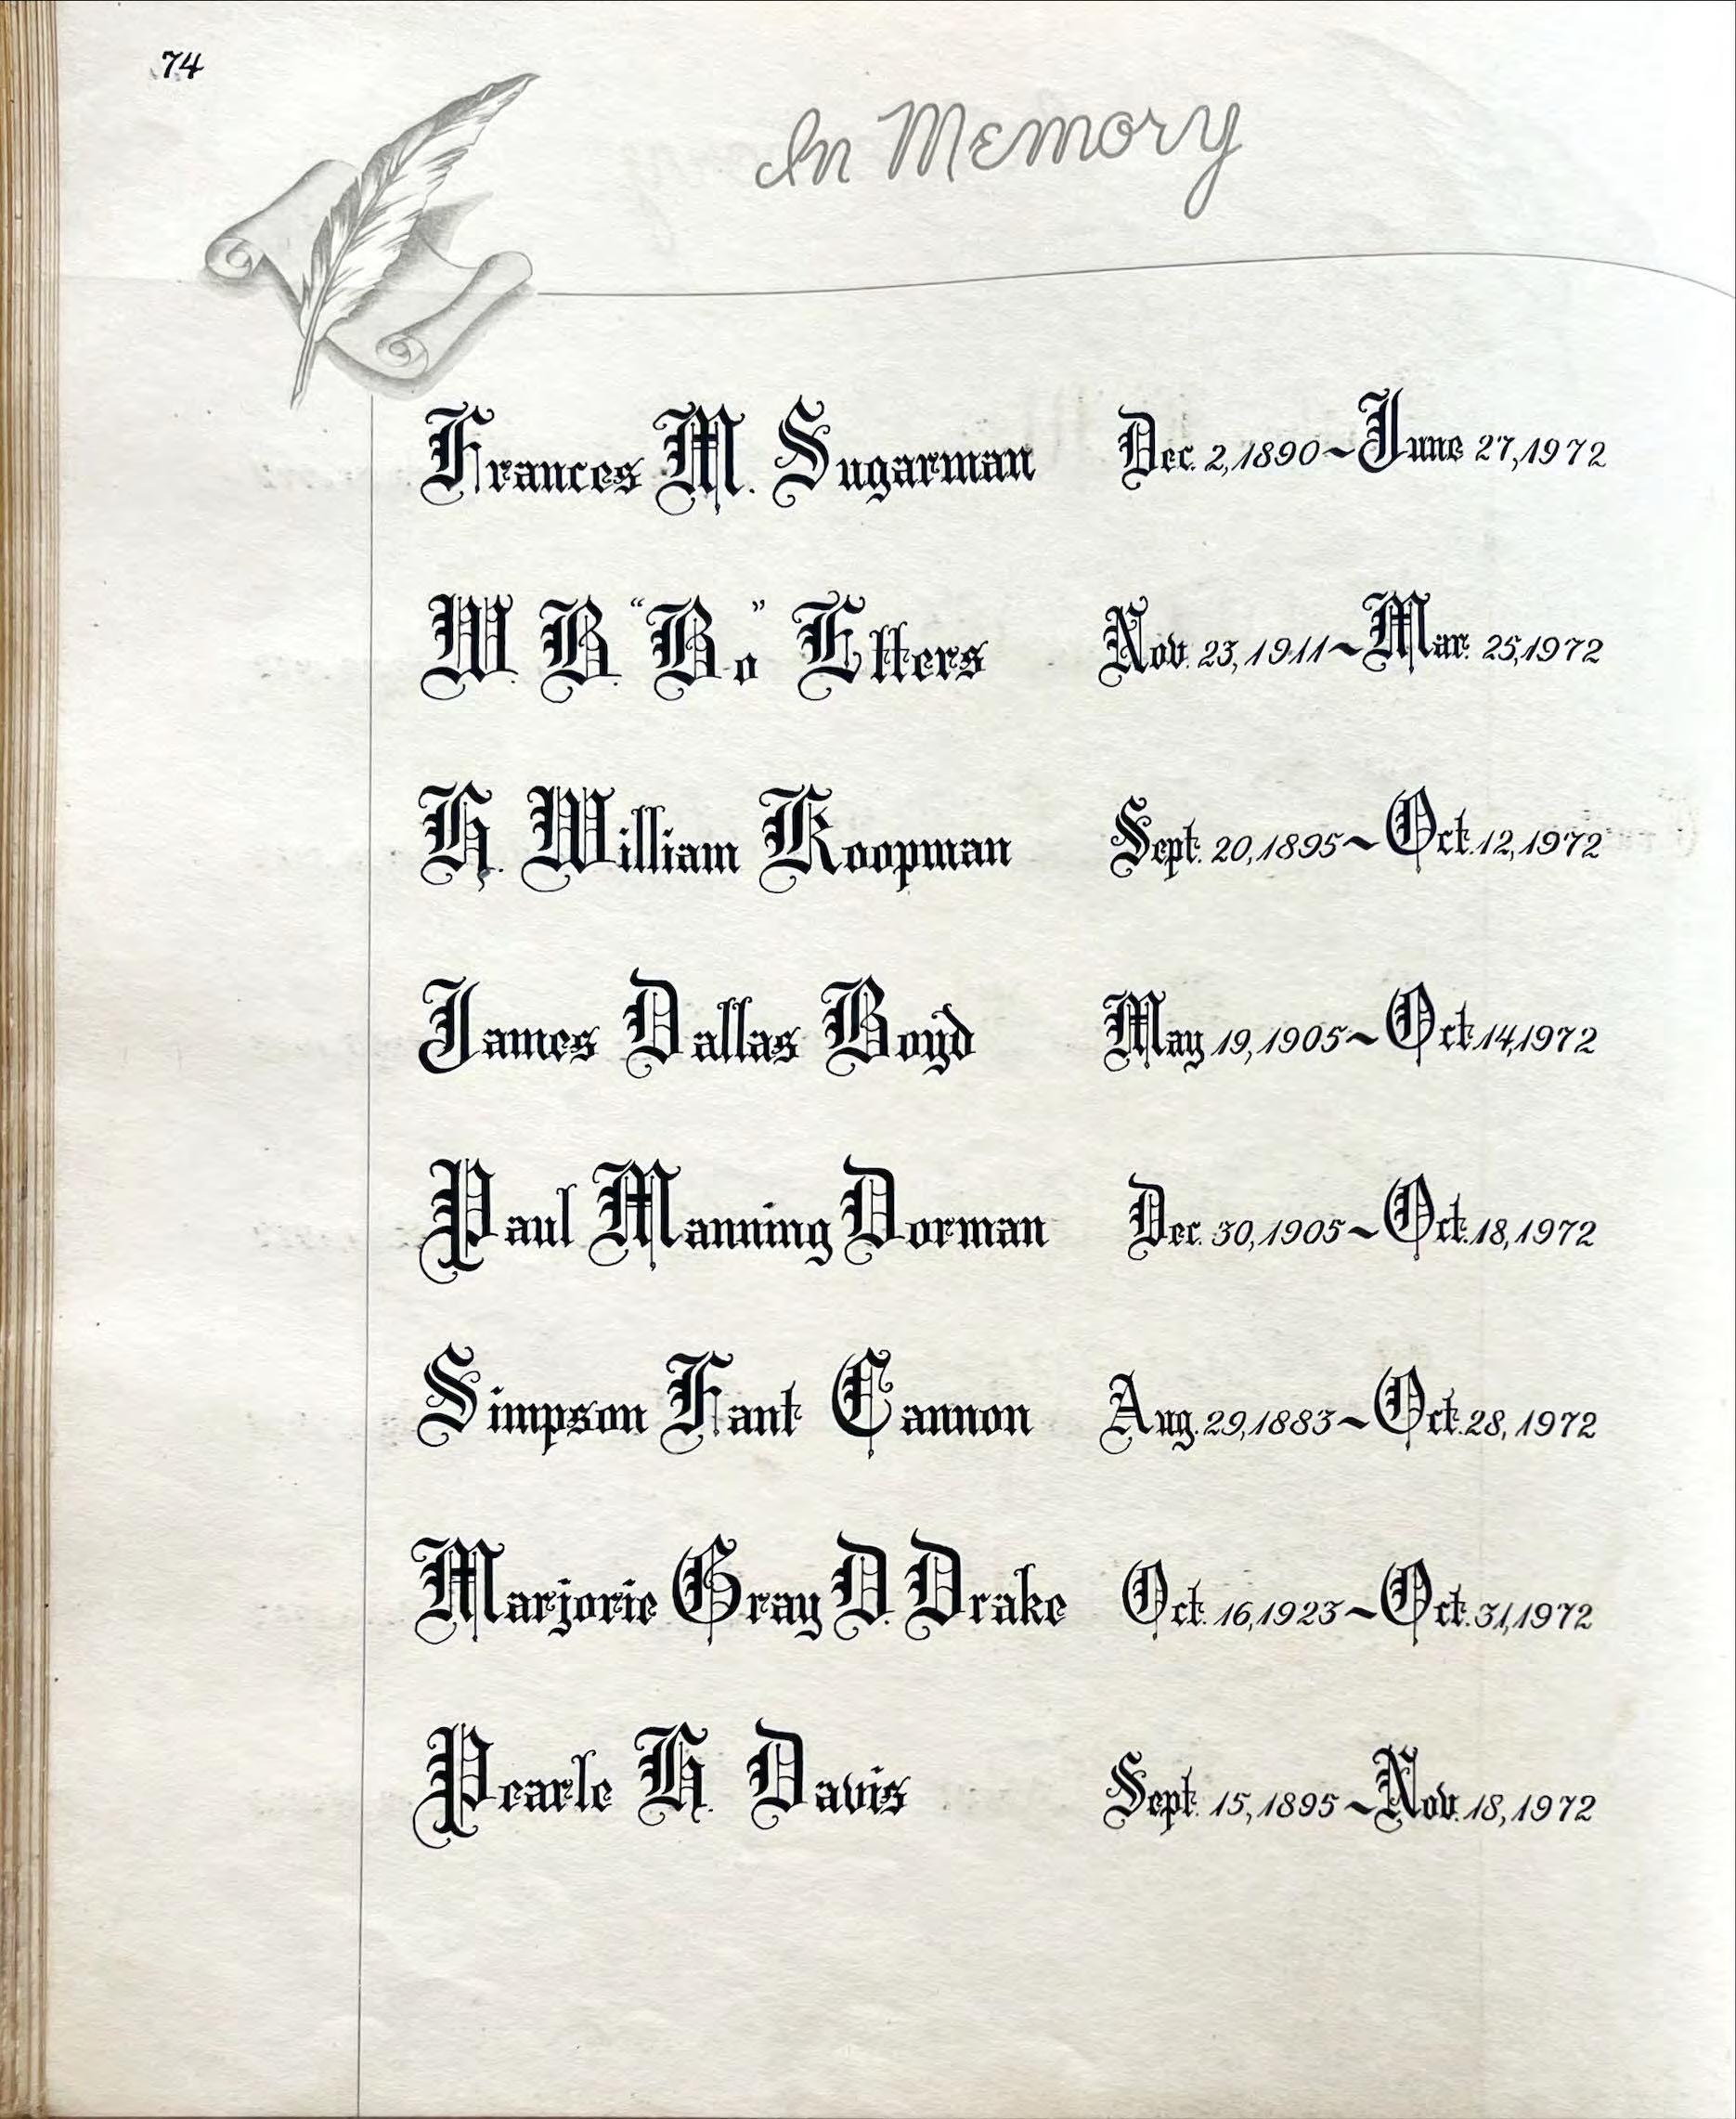 74
In Memory
Frances M. Sugarman Dec. 2, 1890 ~ June 27, 1972
W. B. "Bo" Etters Nov. 23, 1911 ~ Mar. 25, 1972
H. William Koopman Sept. 20, 1895 ~ Oct. 12, 1972
James Dallas Boyd May 19, 1905 ~ Oct. 14, 1972
Paul Manning Dorman Dec. 30, 1905 ~ Oct. 18, 1972
Simpson Fant Cannon Aug. 29, 1883 ~ Oct. 28, 1972
Marjorie Gray D. Drake Oct. 16, 1923 ~ Oct. 31, 1972
Pearle H. Davis Sept. 15, 1895 ~ Nov. 18, 1972